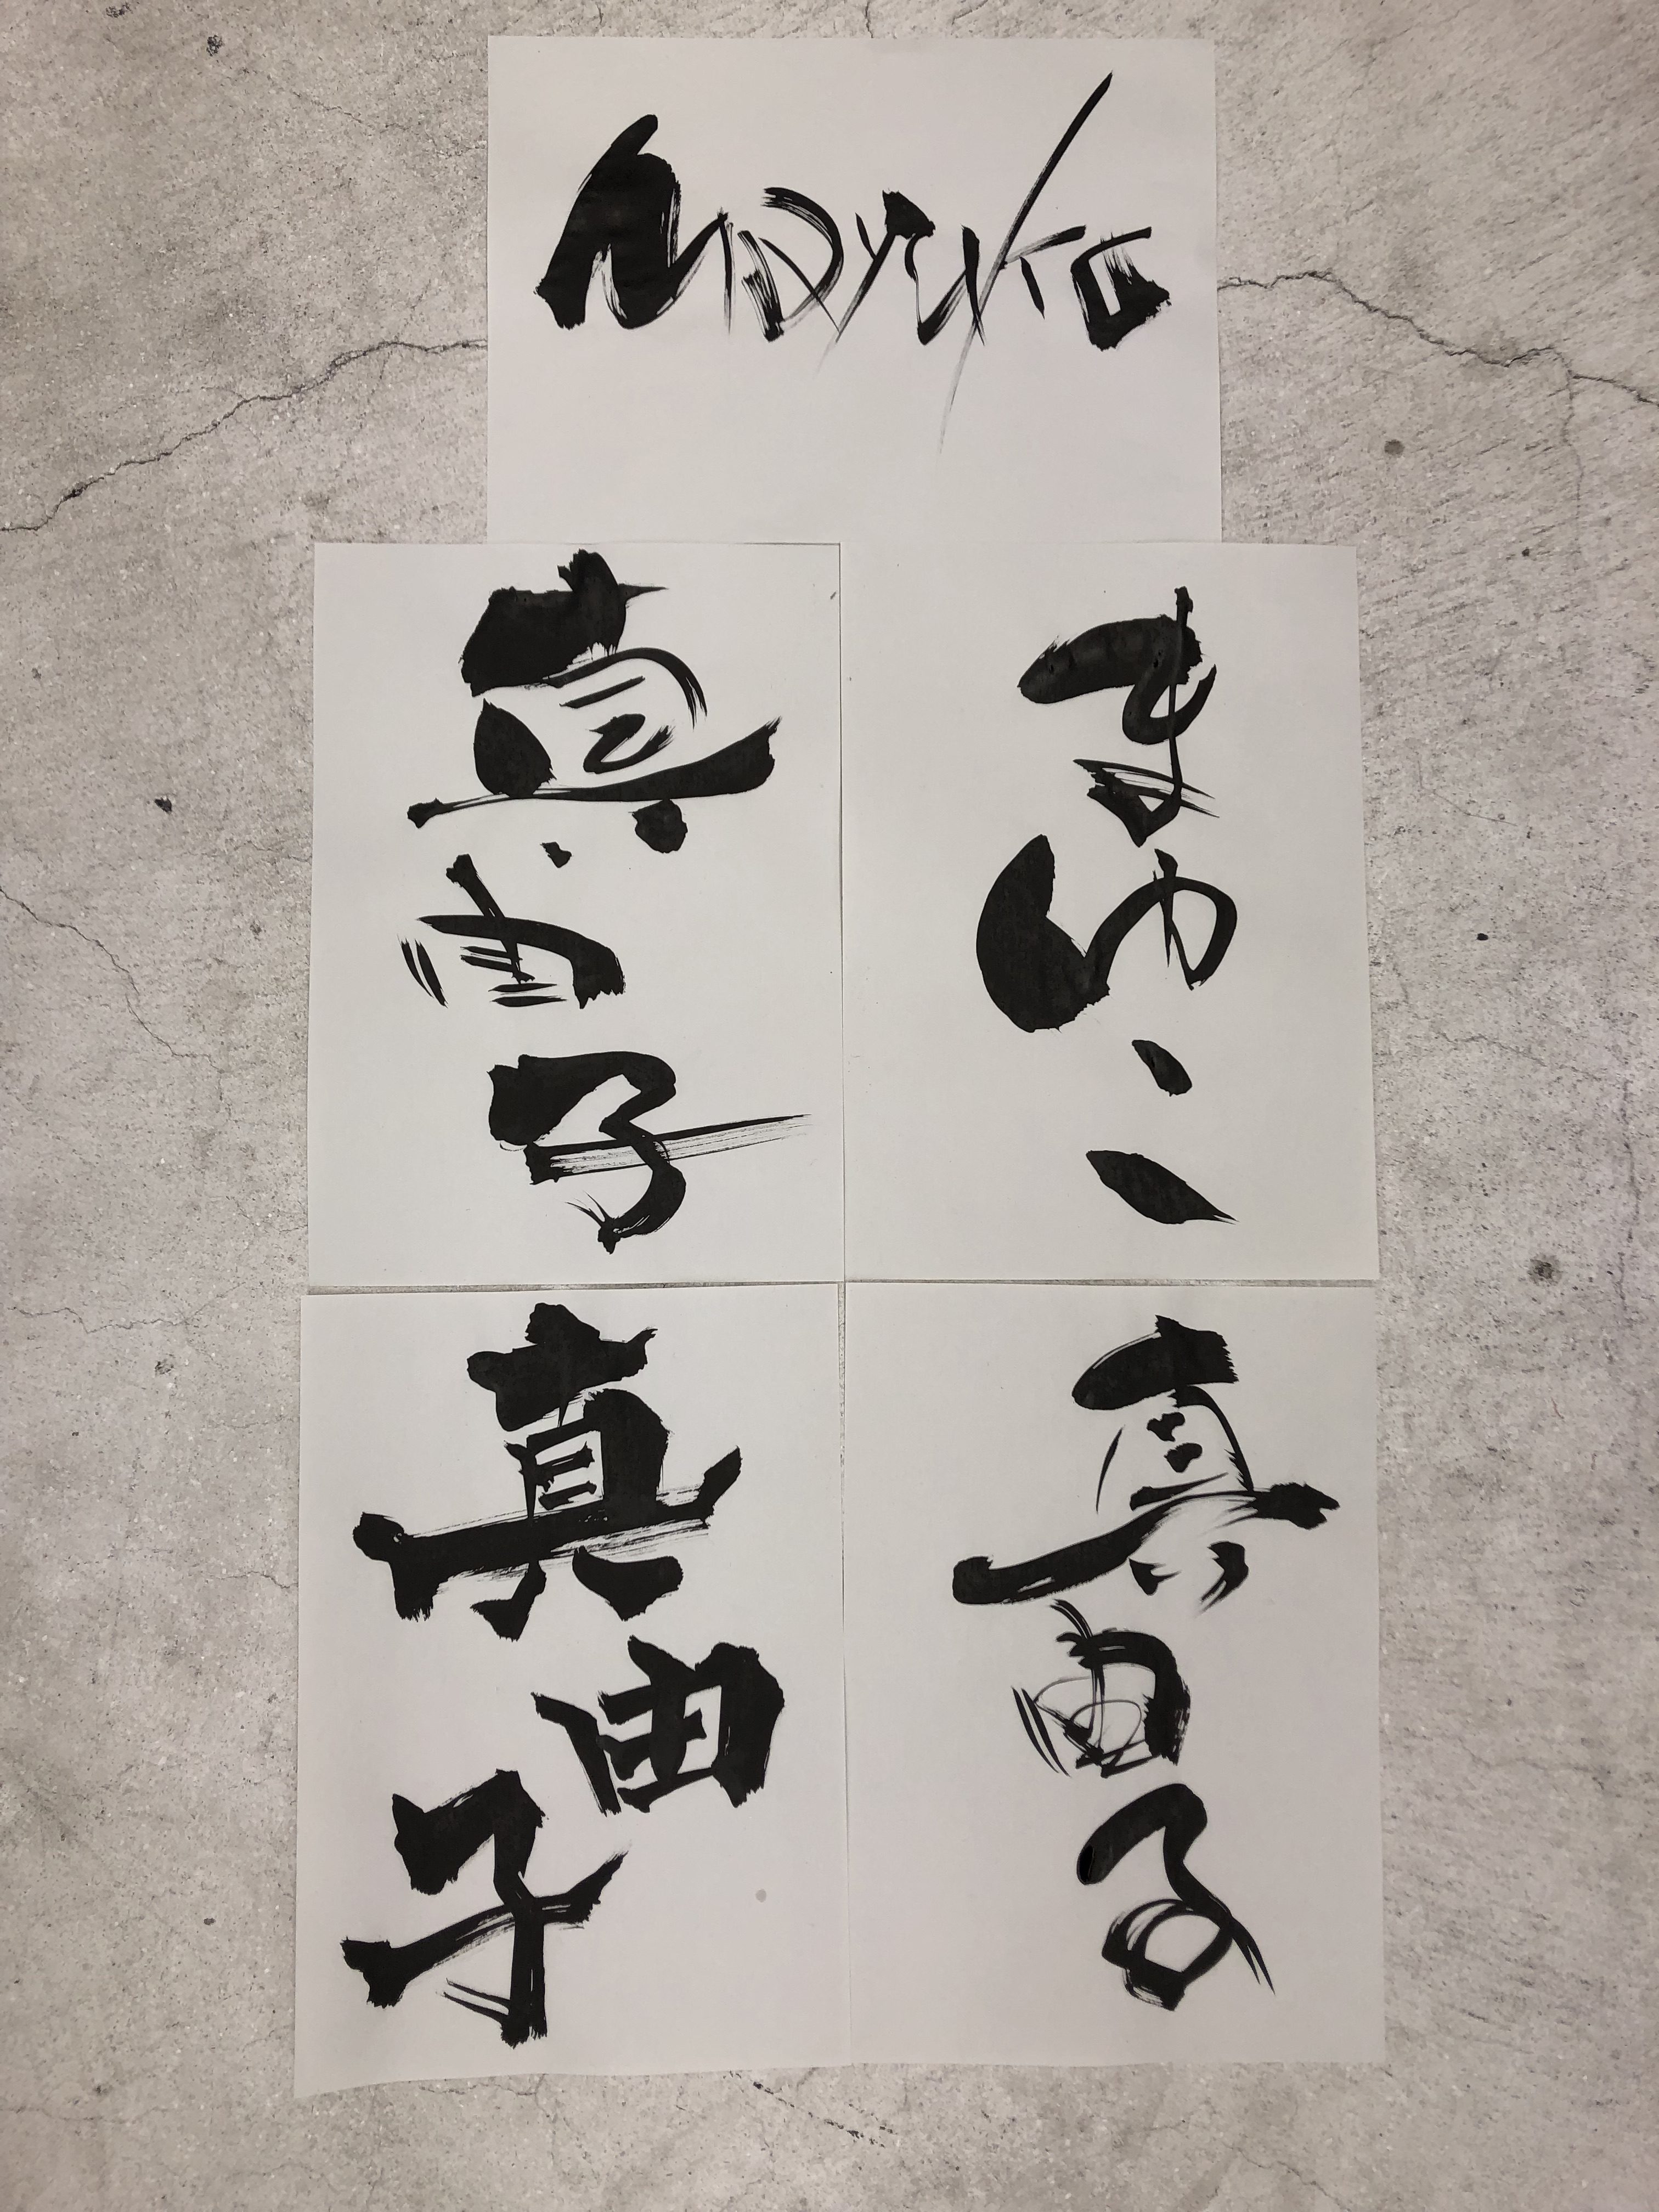 Mayuko
真由子
まゆこ
真由子
真由子